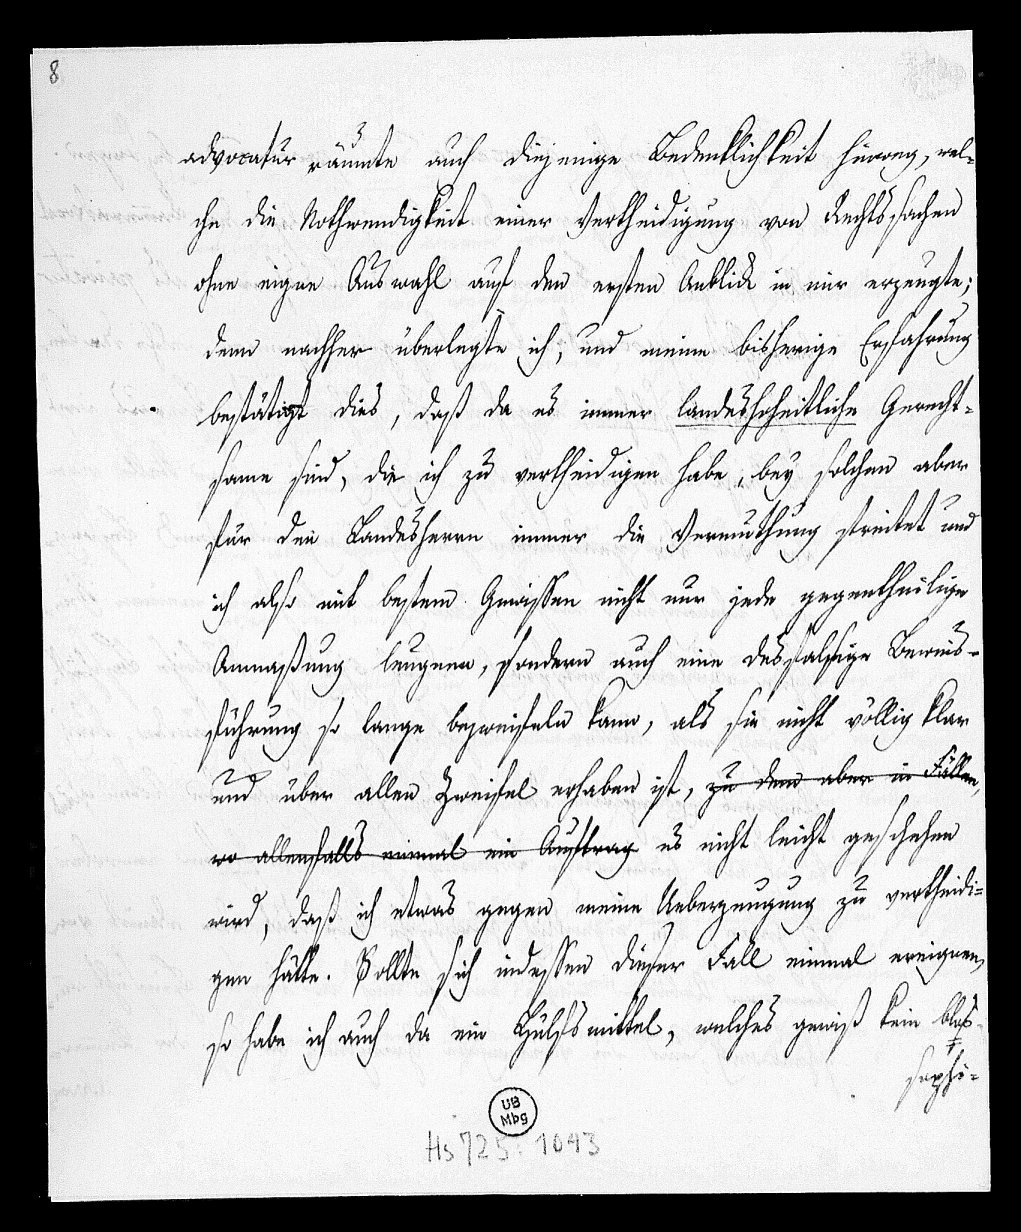 8
advocatur räumte auch diejenige Bedenklichkeit hinweg, wel-
che die Nothwendigkeit einer Vertheidigung von Rechtssachen
ohne eigne Auswahl auf den ersten Anblick in mir erzeugte;
denn nachher überlegte ich, und meine bisherige Erfahrung
bestätigt dies, daß da es immer landeshoheitliche Gerecht-
same sind, die ich zu vertheidigen habe, bey solchen aber
für den Landesherrn immer die Vermuthung streitet und
ich also mit bestem Gewissen nicht nur jede gegentheilige
Anmaßung leugnen, sondern auch eine desfalsige Beweis-
führung so lange bezweifeln kann, als sie nicht völlig klar
und über allen Zweifel erhaben ist, zu dem aber in Fällen,
wo allenfalls einmal ein Auftrag es nicht leicht geschehen
wird, daß ich etwas gegen meine Ueberzeugung zu vertheidi-
gen hätte. Sollte sich indessen dieser Fall einmal ereignen,
so habe ich auch da ein Hülfsmittel, welches gewiß kein blos
sophi-
UB
Mbg
Hs 725: 1043